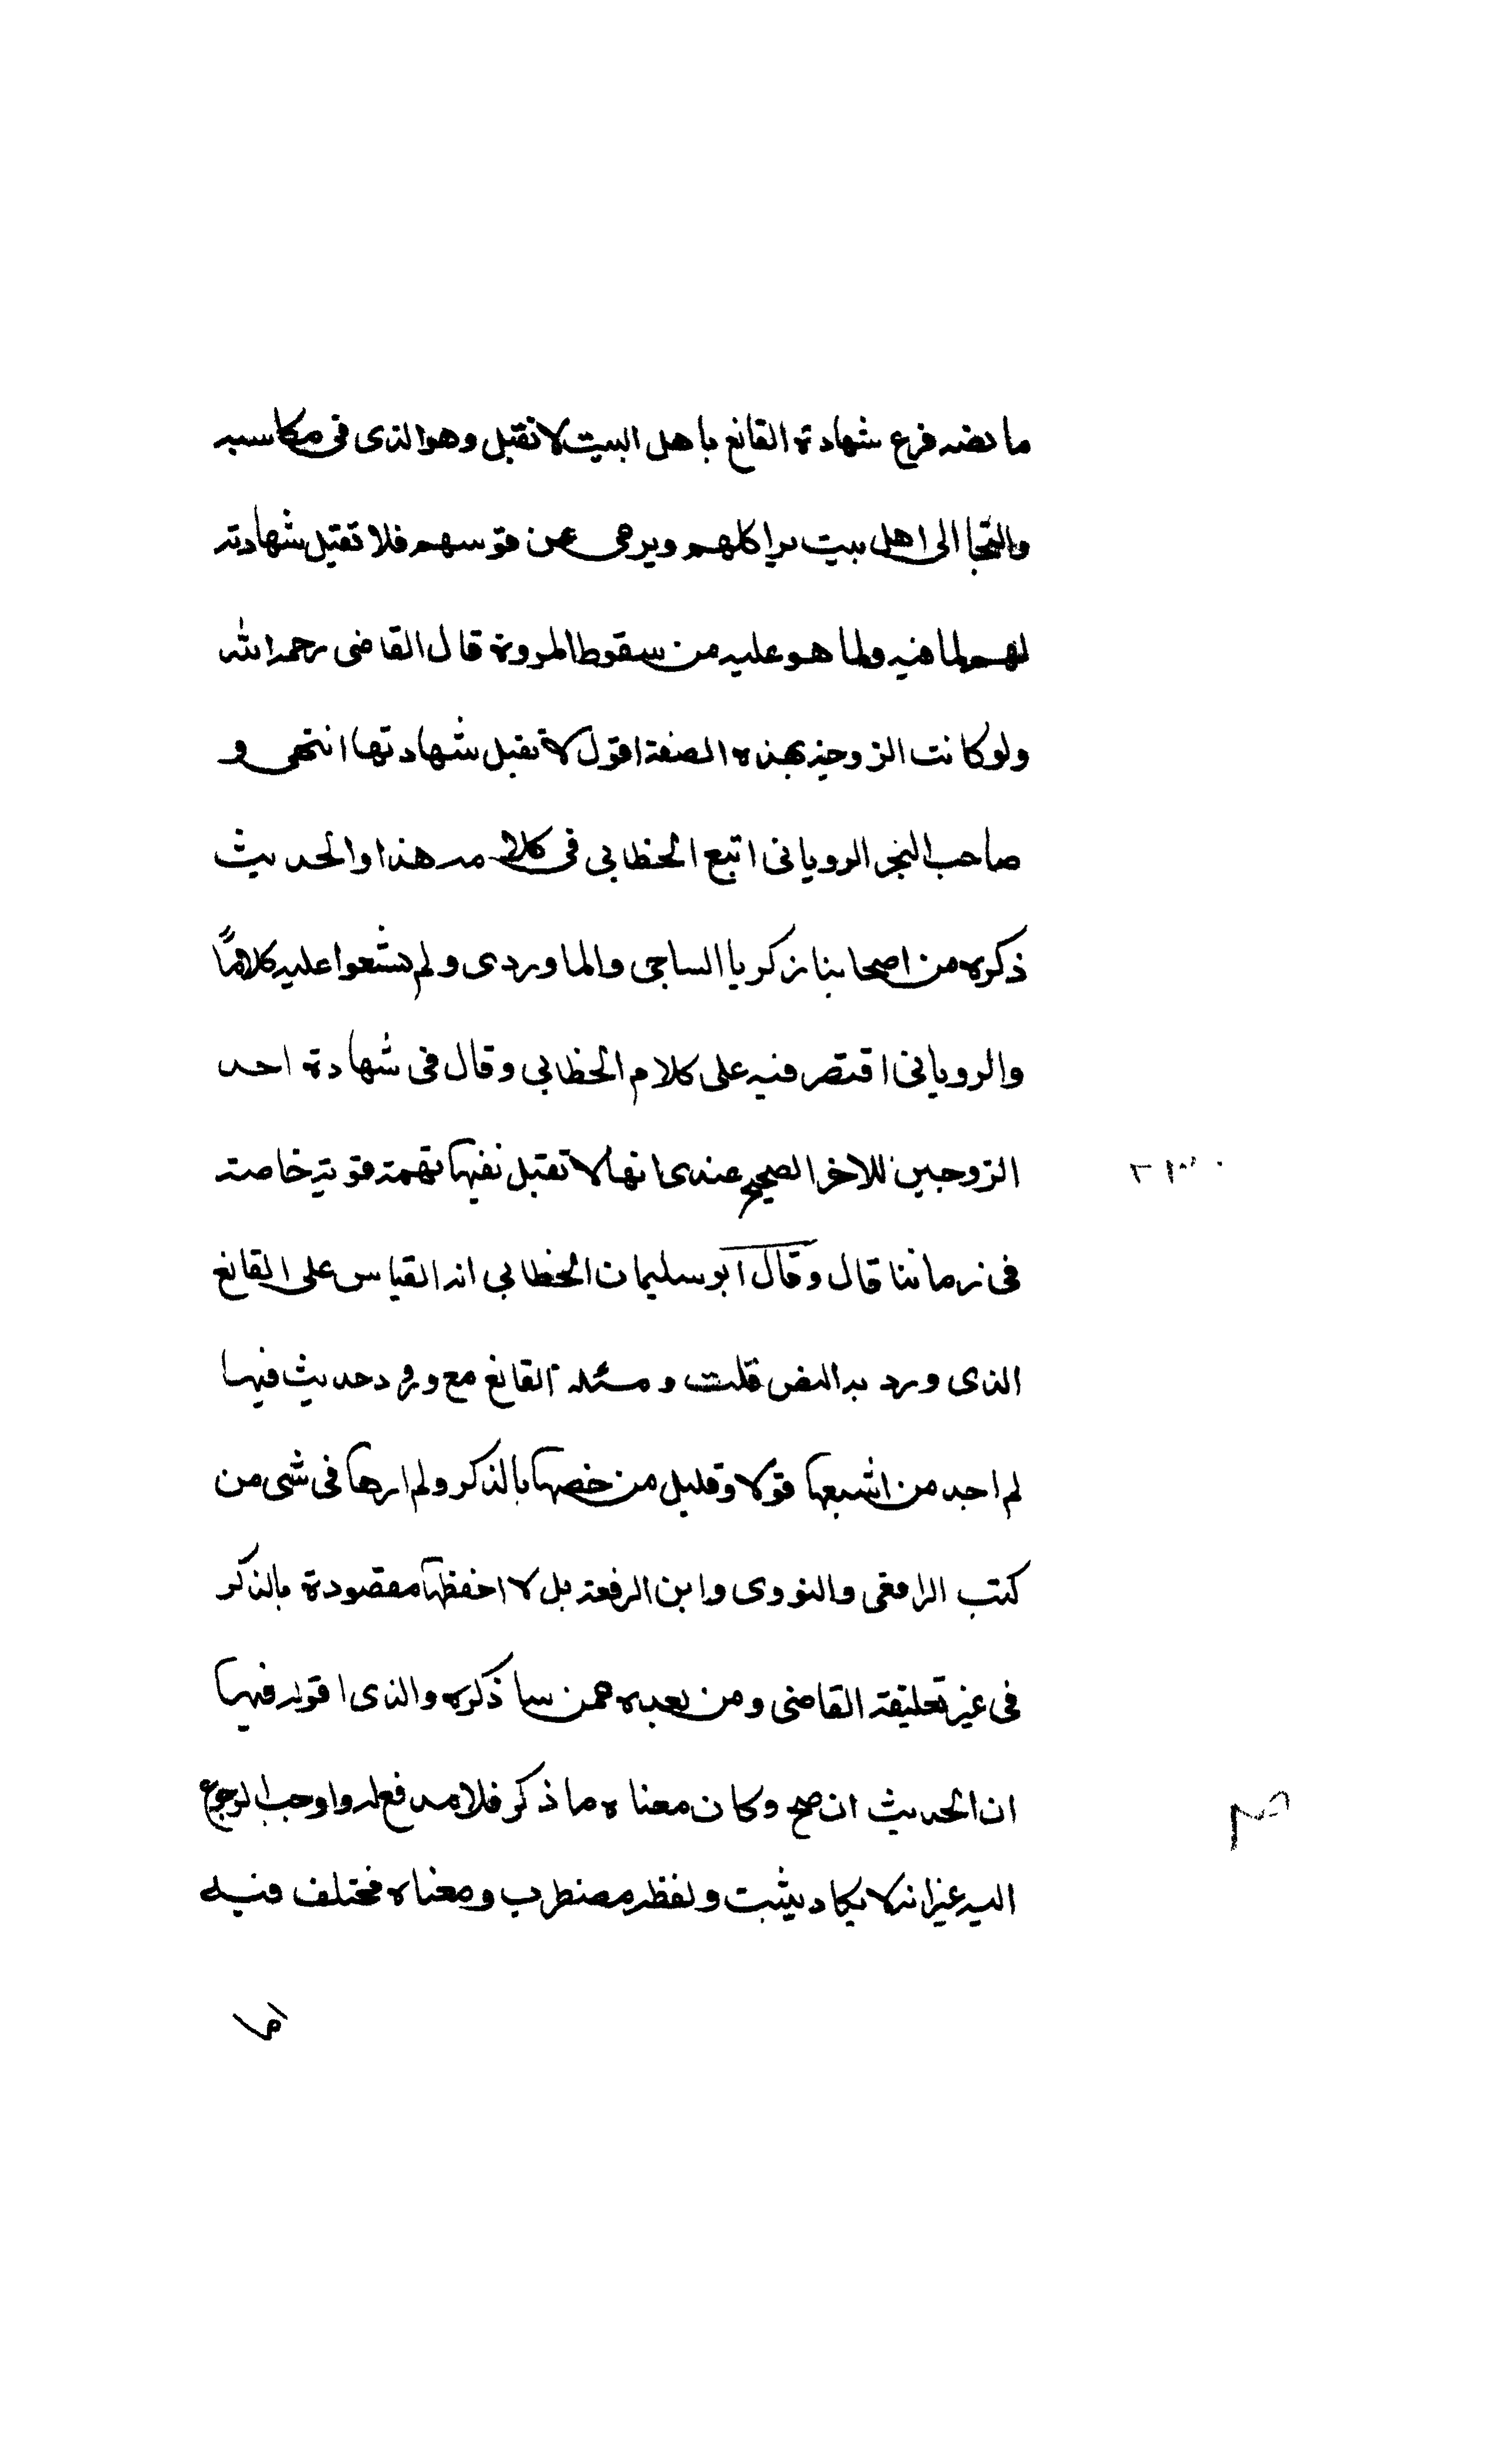 ما نصه فرع شهادة القانع باهل البيت لا تقبل وهو الذى فى مكاسبه
والتجا الى اهل بيت يراكلهم ويرمى عن قوسهم فلا تقبل شهادته
لهم لما فيه ولما هو عليه من سقوط المروة قال القاضى رحمه الله
ولو كانت الزوجية بهذه الصفة اقول لا تقبل شهادتها انتهى و
صاحب البحر الرويانى اتبع الخطابي فى كلامه هذا والحديث
ذكره من اصحابنا زكريا الساجى والماوردى ولم يشبعوا عليه كلامًا
والرويانى اقتصر فيه على كلام الخطابي وقال فى شهادة احد
الزوجين للاخر الصحيح عندى انها لا تقبل نفيها تهمة قوية خاصة
فى زماننا قال وقال ابو سليمان الخطابي انه القياس على القانع
الذى ورد به النص قلت ومسئلة القانع مع ورود حديث فيها
لم اجد من اشبعها قولا وقليل من خصها بالذكر ولم ارها فى شى من
كتب الرافعى والنووى وابن الرفعة بل لا احفظها مقصودة بالذكر
فى غير تعليقة القاضى ومن بعده ممن ساذكره والذى اقوله فيها
ان الحديث ان صح وكان معناه ما ذكر فلا مدفع له واوجب الرجوع
اليه غير انه لا يكاد يثبت ولفظه مضطرب ومعناه مختلف فيه
اما